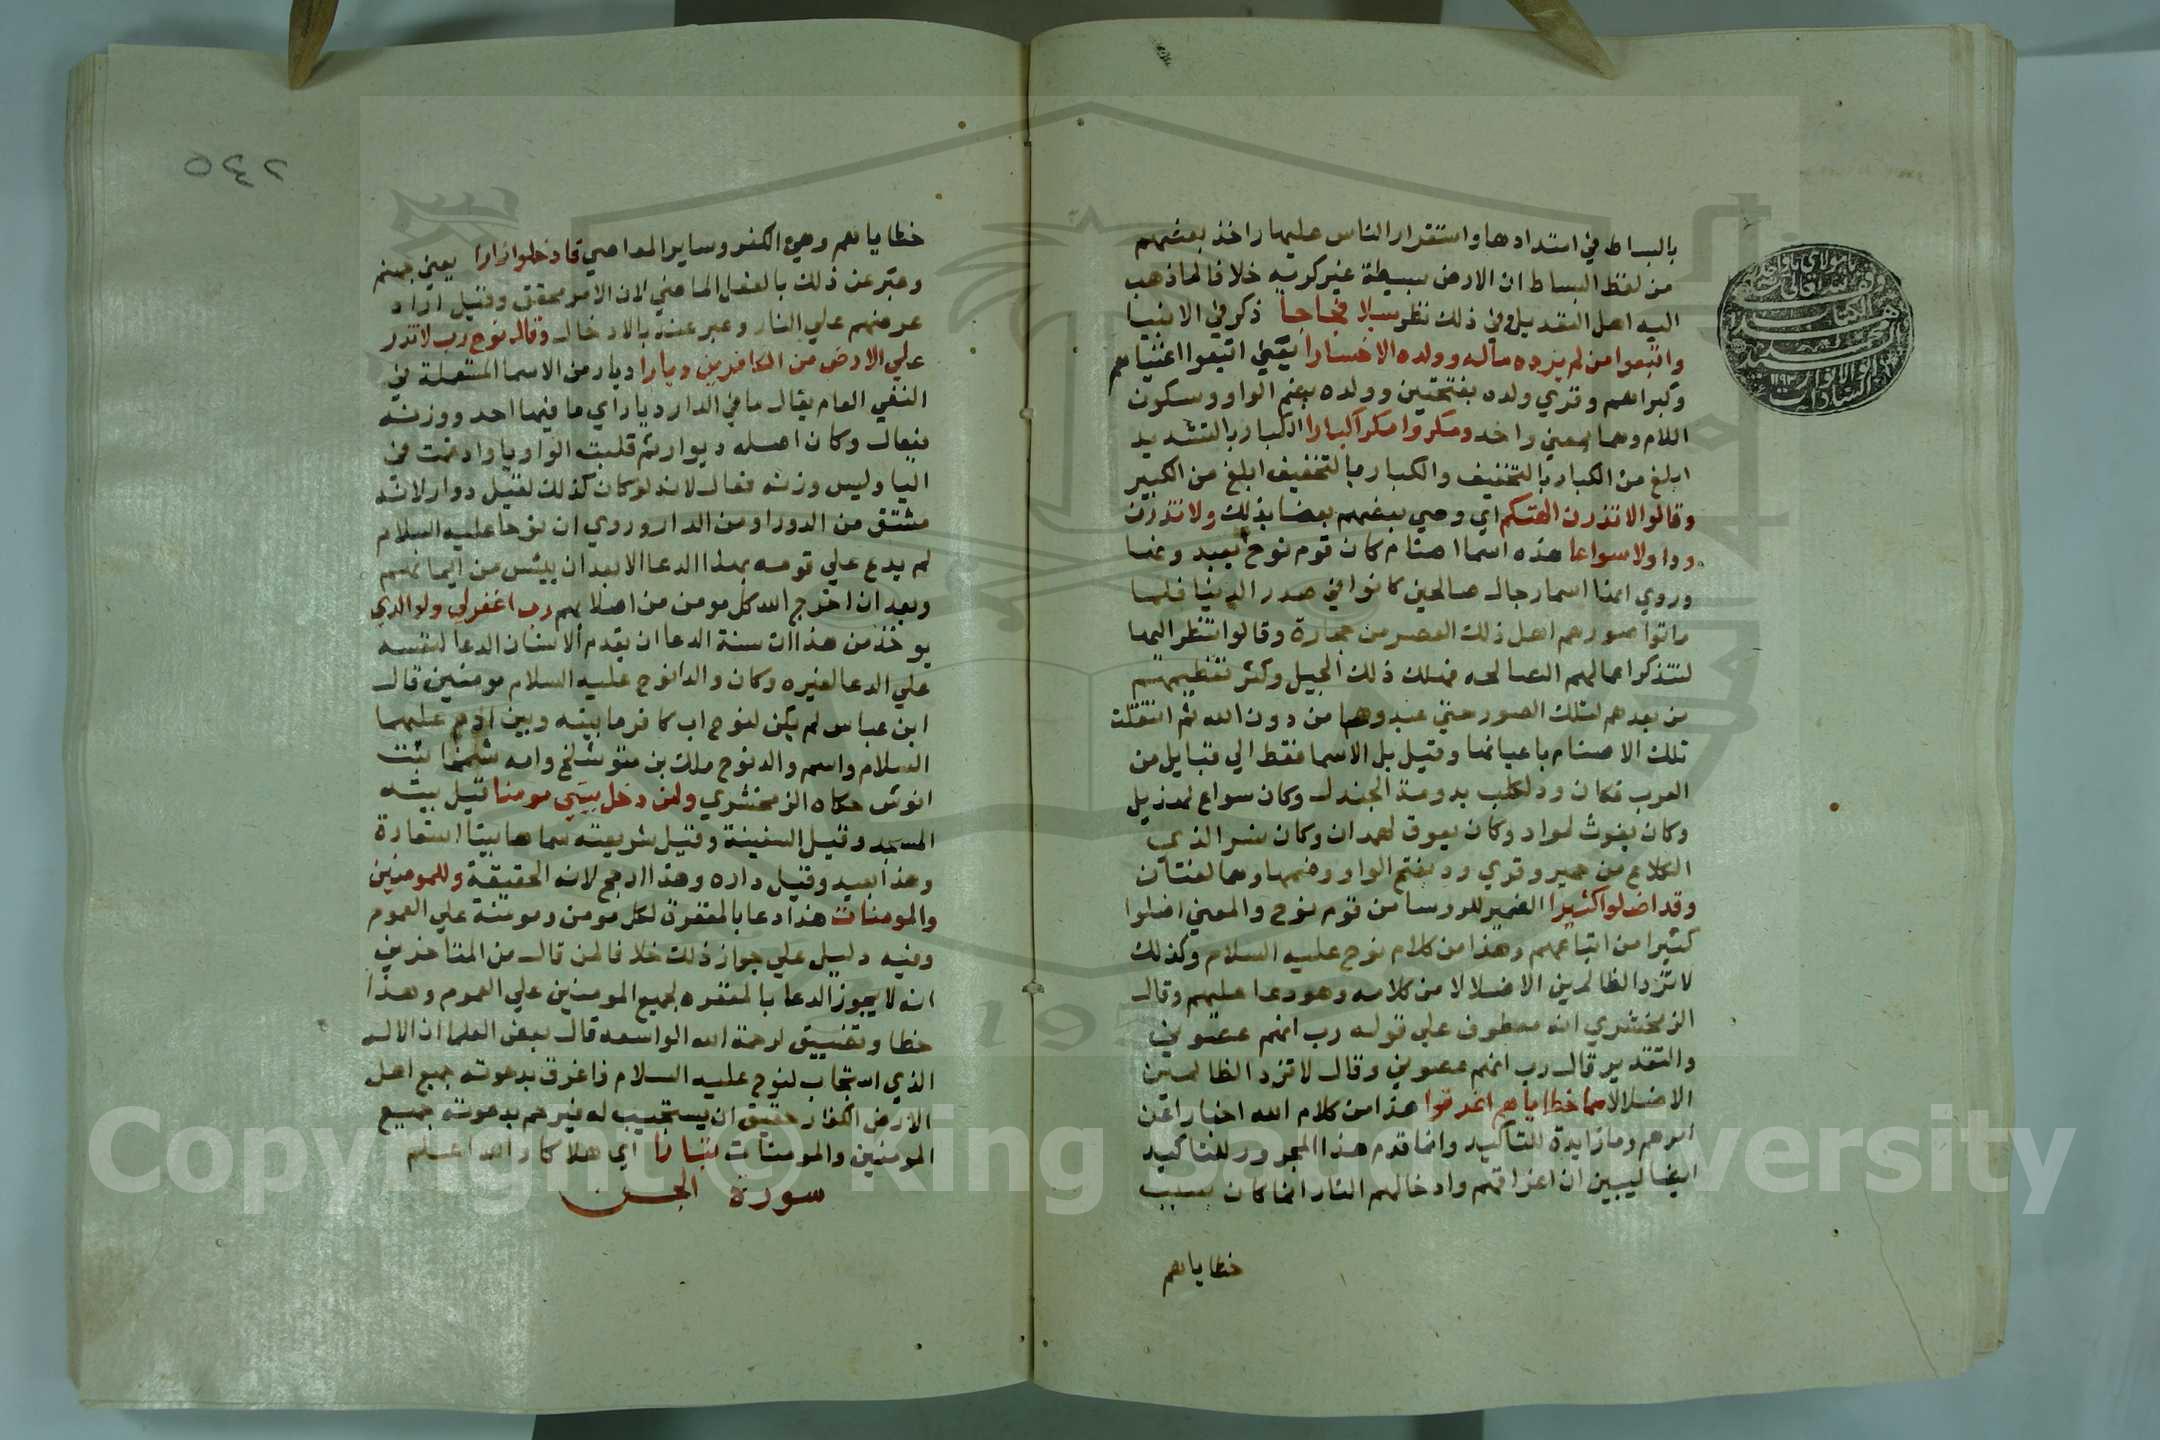 بالبساط في امتدادها واستقرار الناس عليها واخذ بعضهم
من لفظ البساط ان الارض بسيطة غير كرية خلافا لما ذهب
اليه اهل التعديل وفي ذلك نظر سبلا فجاجا ذكر في الانبيا
واتبعوا من لم يزده ماله وولده الا خسارا يعني اتبعوا اغنياهم
وكبراهم وقري ولده بفتحتين وولده بضم الواو وسكون
اللام وهما بمعني واحد ومكروا مكرا كبارا الكبار بالتشديد
ابلغ من الكبار بالتخفيف والكبار بالتخفيف ابلغ من الكبير
وقالوا لا تذرن الهتكم اي وصي بعضهم بعضا بذلك ولا تذرن
ودا ولا سواعا هذه اسما اصنام كان قوم نوح يعبدونها
وروي انها اسما رجال صالحين كانوا في صدر الدنيا فلما
ماتوا صورهم اهل ذلك العصر من حجارة وقالوا ننظر اليها
لنتذكر اعمالهم الصالحه فهلك ذلك الجيل وكثر تعظيمهم
من بعدهم لتلك الصور حتي عبدوها من دون الله ثم انتقلت
تلك الاصنام باعيانها وقيل بل الاسما فقط الي قبايل من
العرب فكان ود لكلب بدومة الجندل وكان سواع لهذيل
وكان يغوث لمراد وكان يعوق لهمدان وكان نسر الذي
الكلاع من حمير وقري ود بفتح الواو وضمها وهما لغتان
وقد اضلوا كثيرا الضمير للروسا من قوم نوح والمعني اضلوا
كثيرا من اتباعهم وهذا من كلام نوح عليه السلام وكذلك
لا تزد الظالمين الا ضلالا من كلامه وهو دعا عليهم وقال
الزمخشري انه معطوف علي قوله رب انهم عصوني
والتقدير قال رب انهم عصوني وقال لا تزد الظالمين
الا ضلالا مما خطاياهم اغرقوا هذا من كلام الله اخبارا عن
امرهم وما زايدة للتاكيد وانما قدم هذا المجرور للتاكيد
ايضا ليبين ان اغراقهم وادخالهم النار انما كان بسبب
خطاياهم
٢٤٥
خطاياهم وهي الكفر وساير المعاصي فادخلوا نارا يعني جهنم
وعبر عن ذلك بالفعل الماضي لان الامر محقق وقيل اراد
عرضهم علي النار وعبر عنه بالادخال وقال نوح رب لا تذر
علي الارض من الكافرين ديارا ديار من الاسما المستعملة في
النفي العام يقال ما في الدار ديار اي ما فيها احد ووزنه
فيعال وكان اصله ديوار ثم قلبت الواو يا وادغمت في
اليا وليس وزنه فعال لانه لو كان كذلك لقيل دوار لانه
مشتق من الدور او من الدار وروي ان نوحا عليه السلام
لم يدع علي قومه بهذا الدعا الا بعد ان ييئس من ايمانهم
وبعد ان اخرج الله كل مومن من اصلابهم رب اغفر لي ولوالدي
يوخذ من هذا ان سنة الدعا ان يقدم الانسان الدعا لنفسه
علي الدعا لغيره وكان والدا نوح عليه السلام مومنين قال
ابن عباس لم يكن لنوح اب كافر ما بينه وبين ادم عليهما
السلام واسم والد نوح ملك بن متوشلخ وامه شمخا بنت
انوش حكاه الزمخشري ولمن دخل بيتي مومنا قيل بيته
المسجد وقيل السفينة وقيل شريعته سماها بيتا استعارة
وهذا بعيد وقيل داره وهذا ارجح لانه الحقيقة وللمومنين
والمومنات هذا دعا بالمغفرة لكل مومن ومومنة علي العموم
وفيه دليل علي جواز ذلك خلافا لمن قال من المتاخرين
انه لا يجوز الدعا بالمغفره لجميع المومنين علي العموم وهذا
خطا وتضييق لرحمة الله الواسعه قال بعض العلما ان الاله
الذي استجاب لنوح عليه السلام فاغرق بدعوته جميع اهل
الارض الكفار حقيق ان يستجيب له فيرحم بدعوته جميع
المومنين والمومنات تبارا اي هلاكا والله اعلم
سورة الجن
Copyright © King Saud University